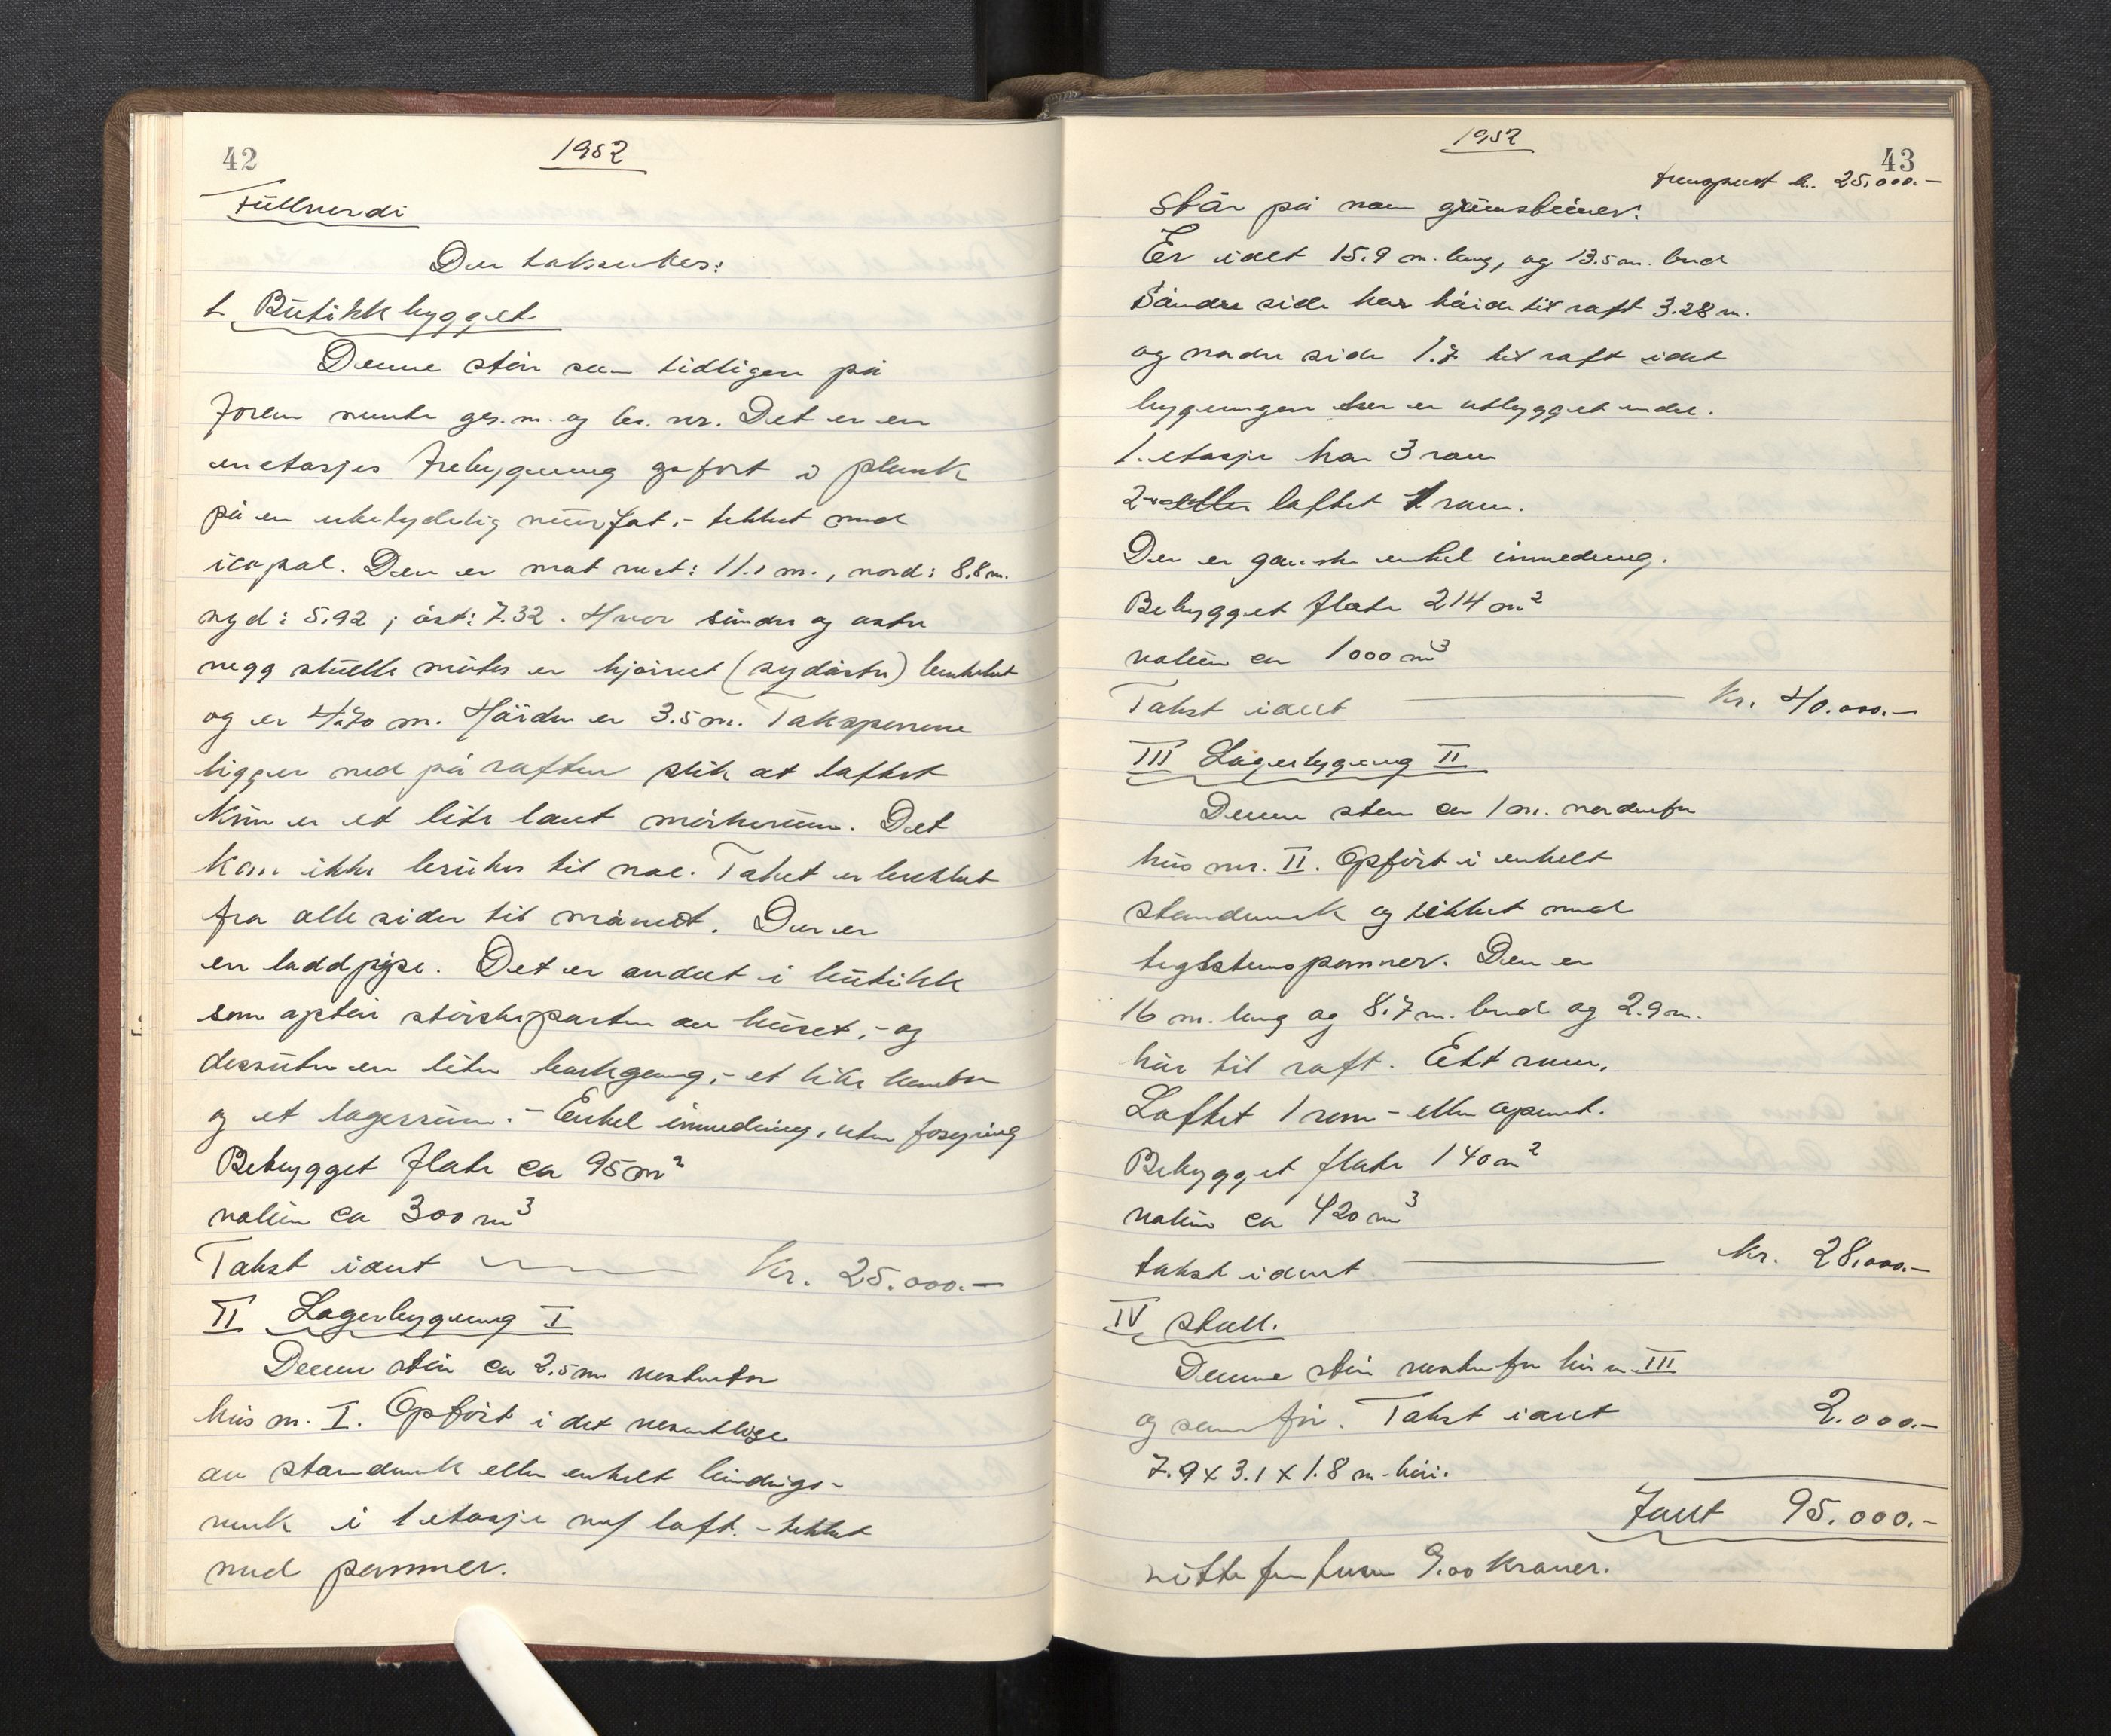 42
1952
Fullverdi
Der takseres:
I Butikkbygget.
Denne står som tidligere på
foran nevnte grs. nr. og br. nr. Det er en
enetasjes trebygning opført i plank
på en ubetydelig murfot, - tekket med
icopal. Den er mot vest: 11.1 m., nord: 8.8 m.
syd: 5.92 ; øst: 7.32. Hvor søndre og østre
vegg skulle møtes er hjørnet (sydøstre) brukket
og er 4.70 m. Høiden er 3.5 m. Taksperrene
ligger ned på raften slik at loftet
kun er et lite lavt mørkerum. Det
kan ikke brukes til noe. Taket er brukket
fra alle sider til mønet. Der er
en laddpipe. Det er innredet i butikk
som optar størsteparten av huset, - og
dessuten en liten bakgang, - et lite kontor
og et lagerrum. - Enkel innredning, uten fosyning
Bebygget flate ca 95 m²
volum ca 300 m³
Takst idnt kr. 25.000.-
II Lagerbygning I
Denne står ca 2.5 m vestenfor
hus nr. I. Opført i det vesentlige
av standverk eller enkelt bindings-
verk i 1 etasje m/ loft. - tekket
med panner.
1952
43
transport kr. 25.000.-
Står på noen grunnsteiner.
Er idet 15.9 m. lang, og 13.5 m. bred
Søndre side har høide til raft 3.28 m.
og nordre side 1.7 til raft idet
bygningen her er utbygget endel.
1. etasje har 3 rom
2. eller loftet 1 rom.
Der er ganske enkel innredning.
Bebygget flate 214 m²
volum ca 1000 m³
Takst idnt kr. 40.000.-
III Lagerbygning II
Denne står ca 1 m. nordenfor
hus nr. II. Opført i enkelt
standverk og tekket med
teglstenspanner. Den er
16 m. lang og 8.7 m. bred og 2.9 m.
høi til raft. Ett rom.
Loftet 1 rom - eller åpent.
Bebygget flate 140 m²
volum ca 420 m³
takst idnt kr. 28.000.-
IV Skull.
Denne står vestenfor hus nr. III
og som før. Takst idnt 2.000.-
7.9 x 3.1 x 1.8 m. høi.
Ialt 95.000.-
nitti fem tusen 9.00 kroner.